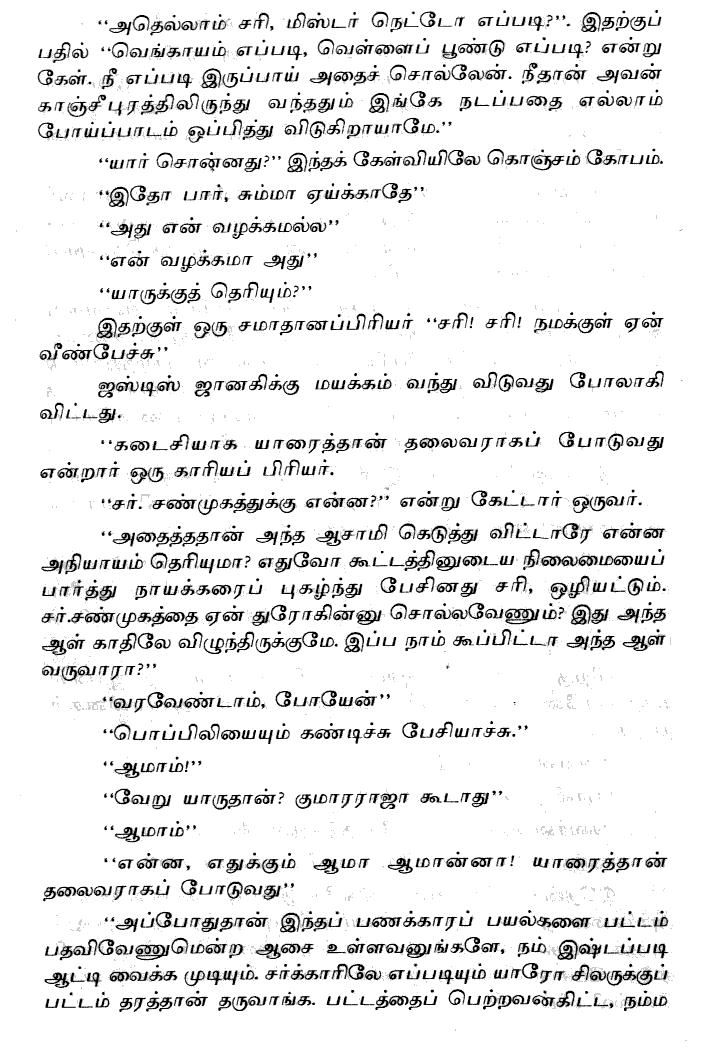 ‘‘அதெல்லாம் சரி, மிஸ்டர் நெட்டோ எப்படி?’’. இதற்குப்
பதில் ‘‘வெங்காயம் எப்படி, வெள்ளைப் பூண்டு எப்படி? என்று
கேள். நீ எப்படி இருப்பாய் அதைச் சொல்லேன். நீதான் அவன்
காஞ்சீபுரத்திலிருந்து வந்ததும் இங்கே நடப்பதை எல்லாம்
போய்ப்பாடம் ஒப்பித்து விடுகிறாயாமே.’’
‘‘யார் சொன்னது?’’ இந்தக் கேள்வியிலே கொஞ்சம் கோபம்.
‘‘இதோ பார், சும்மா ஏய்க்காதே’’
‘‘அது என் வழக்கமல்ல’’
‘‘என் வழக்கமா அது’’
‘‘யாருக்குத் தெரியும்?’’
இதற்குள் ஒரு சமாதானப்பிரியர் ‘‘சரி! சரி! நமக்குள் ஏன்
வீண்பேச்சு’’
ஜஸ்டிஸ் ஜானகிக்கு மயக்கம் வந்து விடுவது போலாகி
விட்டது.
‘‘கடைசியாக யாரைத்தான் தலைவராகப் போடுவது
என்றார் ஒரு காரியப் பிரியர்.
‘‘சர். சண்முகத்துக்கு என்ன?’’ என்று கேட்டார் ஒருவர்.
‘‘அதைத்ததான் அந்த ஆசாமி கெடுத்து விட்டாரே என்ன
அநியாயம் தெரியுமா? எதுவோ கூட்டத்தினுடைய நிலைமையைப்
பார்த்து நாயக்கரைப் புகழ்ந்து பேசினது சரி, ஒழியட்டும்.
சர்.சண்முகத்தை ஏன் துரோகின்னு சொல்லவேணும்? இது அந்த
ஆள் காதிலே விழுந்திருக்குமே. இப்ப நாம் கூப்பிட்டா அந்த ஆள்
வருவாரா?’’
‘‘வரவேண்டாம், போயேன்’’
‘‘பொப்பிலியையும் கண்டிச்சு பேசியாச்சு.’’
‘‘ஆமாம்!’’
‘‘வேறு யாருதான்? குமாரராஜா கூடாது’’
‘‘ஆமாம்’’
‘‘என்ன, எதுக்கும் ஆமா ஆமான்னா! யாரைத்தான்
தலைவராகப் போடுவது’’
‘‘அப்போதுதான் இந்தப் பணக்காரப் பயல்களை பட்டம்
பதவிவேணுமென்ற ஆசை உள்ளவனுங்களே, நம் இஷ்டப்படி
ஆட்டி வைக்க முடியும். சர்க்காரிலே எப்படியும் யாரோ சிலருக்குப்
பட்டம் தரத்தான் தருவாங்க. பட்டத்தைப் பெற்றவன்கிட்ட, நம்ம